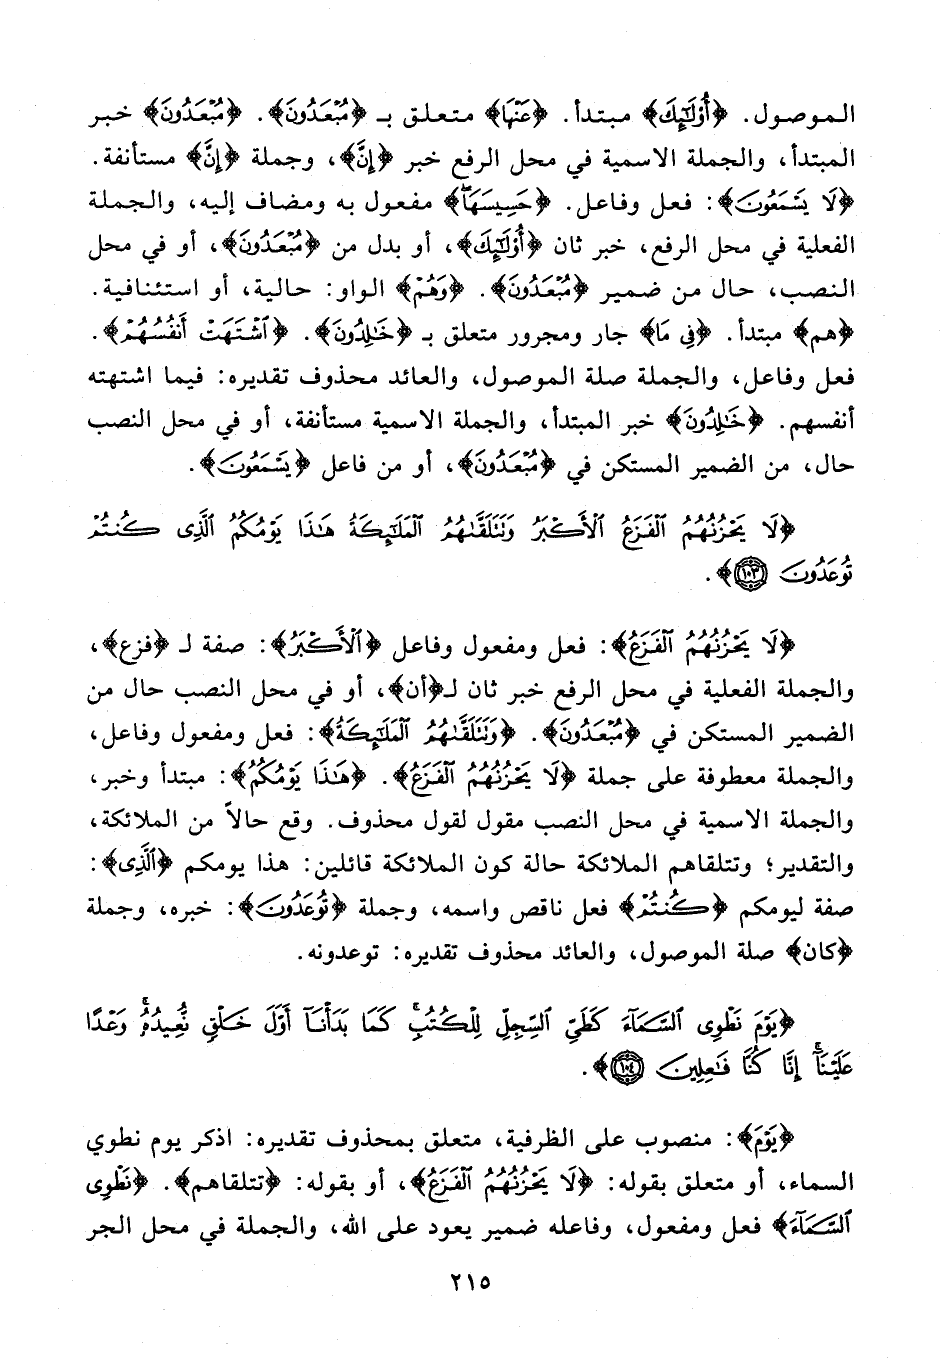 الموصول. ﴿أُوْلَـٰٓئِكَ﴾ مبتدأ. ﴿عَنْهَا﴾ متعلق بـ ﴿مُبْعَدُونَ﴾. ﴿مُبْعَدُونَ﴾ خبر
المبتدأ، والجملة الاسمية في محل الرفع خبر ﴿إِنَّ﴾، وجملة ﴿إِنَّ﴾ مستأنفة.
﴿لَا يَسْمَعُونَ﴾: فعل وفاعل. ﴿حَسِيسَهَا﴾ مفعول به ومضاف إليه، والجملة
الفعلية في محل الرفع، خبر ثان ﴿أُوْلَـٰٓئِكَ﴾، أو بدل من ﴿مُبْعَدُونَ﴾، أو في محل
النصب، حال من ضمير ﴿مُبْعَدُونَ﴾. ﴿وَهُمْ﴾ الواو: حالية، أو استئنافية.
﴿هم﴾ مبتدأ. ﴿فِي مَا﴾ جار ومجرور متعلق بـ ﴿خَـٰلِدُونَ﴾. ﴿ٱشْتَهَتْ أَنفُسُهُمْ﴾.
فعل وفاعل، والجملة صلة الموصول، والعائد محذوف تقديره: فيما اشتهته
أنفسهم. ﴿خَـٰلِدُونَ﴾ خبر المبتدأ، والجملة الاسمية مستأنفة، أو في محل النصب
حال، من الضمير المستكن في ﴿مُبْعَدُونَ﴾، أو من فاعل ﴿يَسْمَعُونَ﴾.
﴿لَا يَحْزُنُهُمُ ٱلْفَزَعُ ٱلْأَكْبَرُ وَتَتَلَقَّىٰهُمُ ٱلْمَلَـٰٓئِكَةُ هَـٰذَا يَوْمُكُمُ ٱلَّذِى كُنتُمْ
تُوعَدُونَ ١٠٣﴾.
﴿لَا يَحْزُنُهُمُ ٱلْفَزَعُ﴾: فعل ومفعول وفاعل ﴿ٱلْأَكْبَرُ﴾: صفة لـ ﴿فزع﴾،
والجملة الفعلية في محل الرفع خبر ثان لـ﴿أن﴾، أو في محل النصب حال من
الضمير المستكن في ﴿مُبْعَدُونَ﴾. ﴿وَتَتَلَقَّىٰهُمُ ٱلْمَلَـٰٓئِكَةُ﴾: فعل ومفعول وفاعل،
والجملة معطوفة على جملة ﴿لَا يَحْزُنُهُمُ ٱلْفَزَعُ﴾. ﴿هَـٰذَا يَوْمُكُمُ﴾: مبتدأ وخبر،
والجملة الاسمية في محل النصب مقول لقول محذوف. وقع حالاً من الملائكة،
والتقدير؛ وتتلقاهم الملائكة حالة كون الملائكة قائلين: هذا يومكم ﴿ٱلَّذِى﴾:
صفة ليومكم ﴿كُنتُمْ﴾ فعل ناقص واسمه، وجملة ﴿تُوعَدُونَ﴾: خبره، وجملة
﴿كان﴾ صلة الموصول، والعائد محذوف تقديره: توعدونه.
﴿يَوْمَ نَطْوِى ٱلسَّمَآءَ كَطَىِّ ٱلسِّجِلِّ لِلْكُتُبِ ۚ كَمَا بَدَأْنَآ أَوَّلَ خَلْقٍ نُّعِيدُهُۥ ۚ وَعْدًا
عَلَيْنَآ ۚ إِنَّا كُنَّا فَـٰعِلِينَ ١٠٤﴾.
﴿يَوْمَ﴾: منصوب على الظرفية، متعلق بمحذوف تقديره: اذكر يوم نطوي
السماء، أو متعلق بقوله: ﴿لَا يَحْزُنُهُمُ ٱلْفَزَعُ﴾، أو بقوله: ﴿تتلقاهم﴾. ﴿نَطْوِى
ٱلسَّمَآءَ﴾ فعل ومفعول، وفاعله ضمير يعود على الله، والجملة في محل الجر
٢١٥